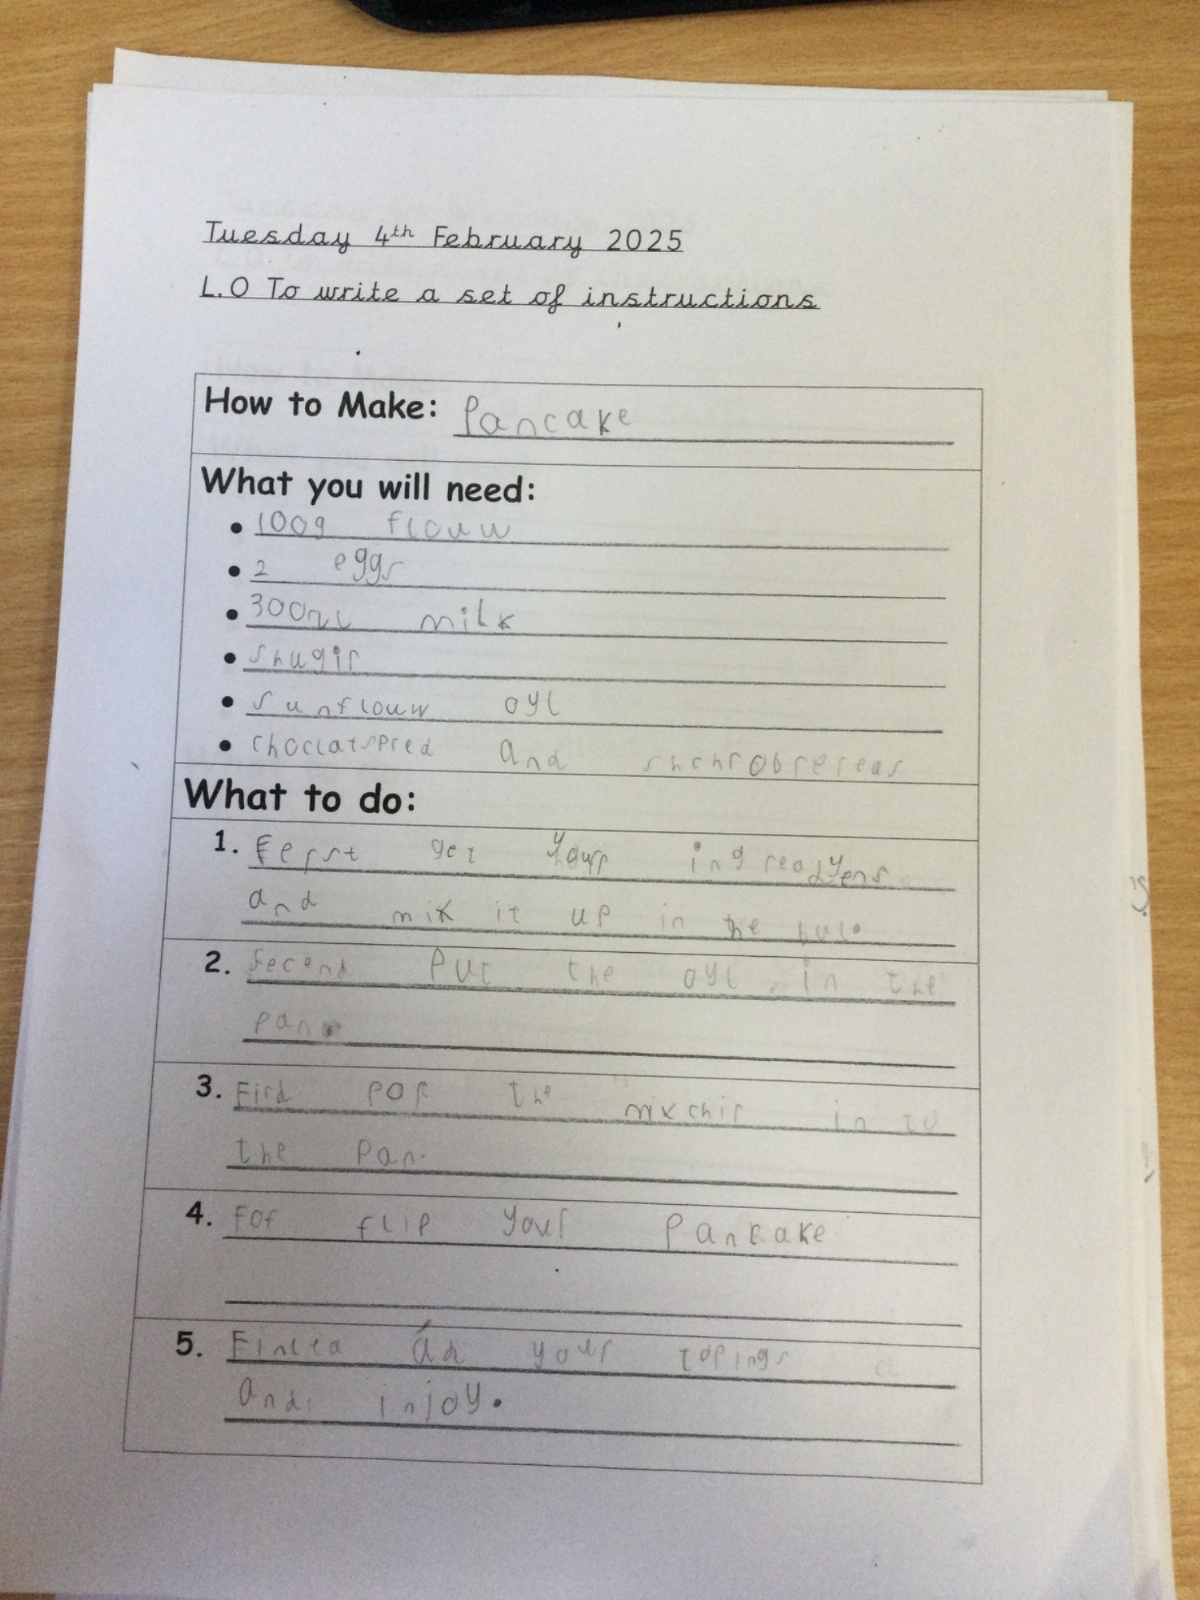 Tuesday 4th February 2025
L.O To write a set of instructions
How to Make: Pancake
What you will need:
• 100g flouw
• 2 eggs
• 300ml milk
• shugir
• sunflouw oyl
• choclatspred and
What to do:
1. Ferst get your ingreadyens
and mix it up in the
2. Second put the oyl in the
pan.
3. Fird por the mixchir in to
the pan.
4. Fof flip your pancake
5. your topings
and injoy.